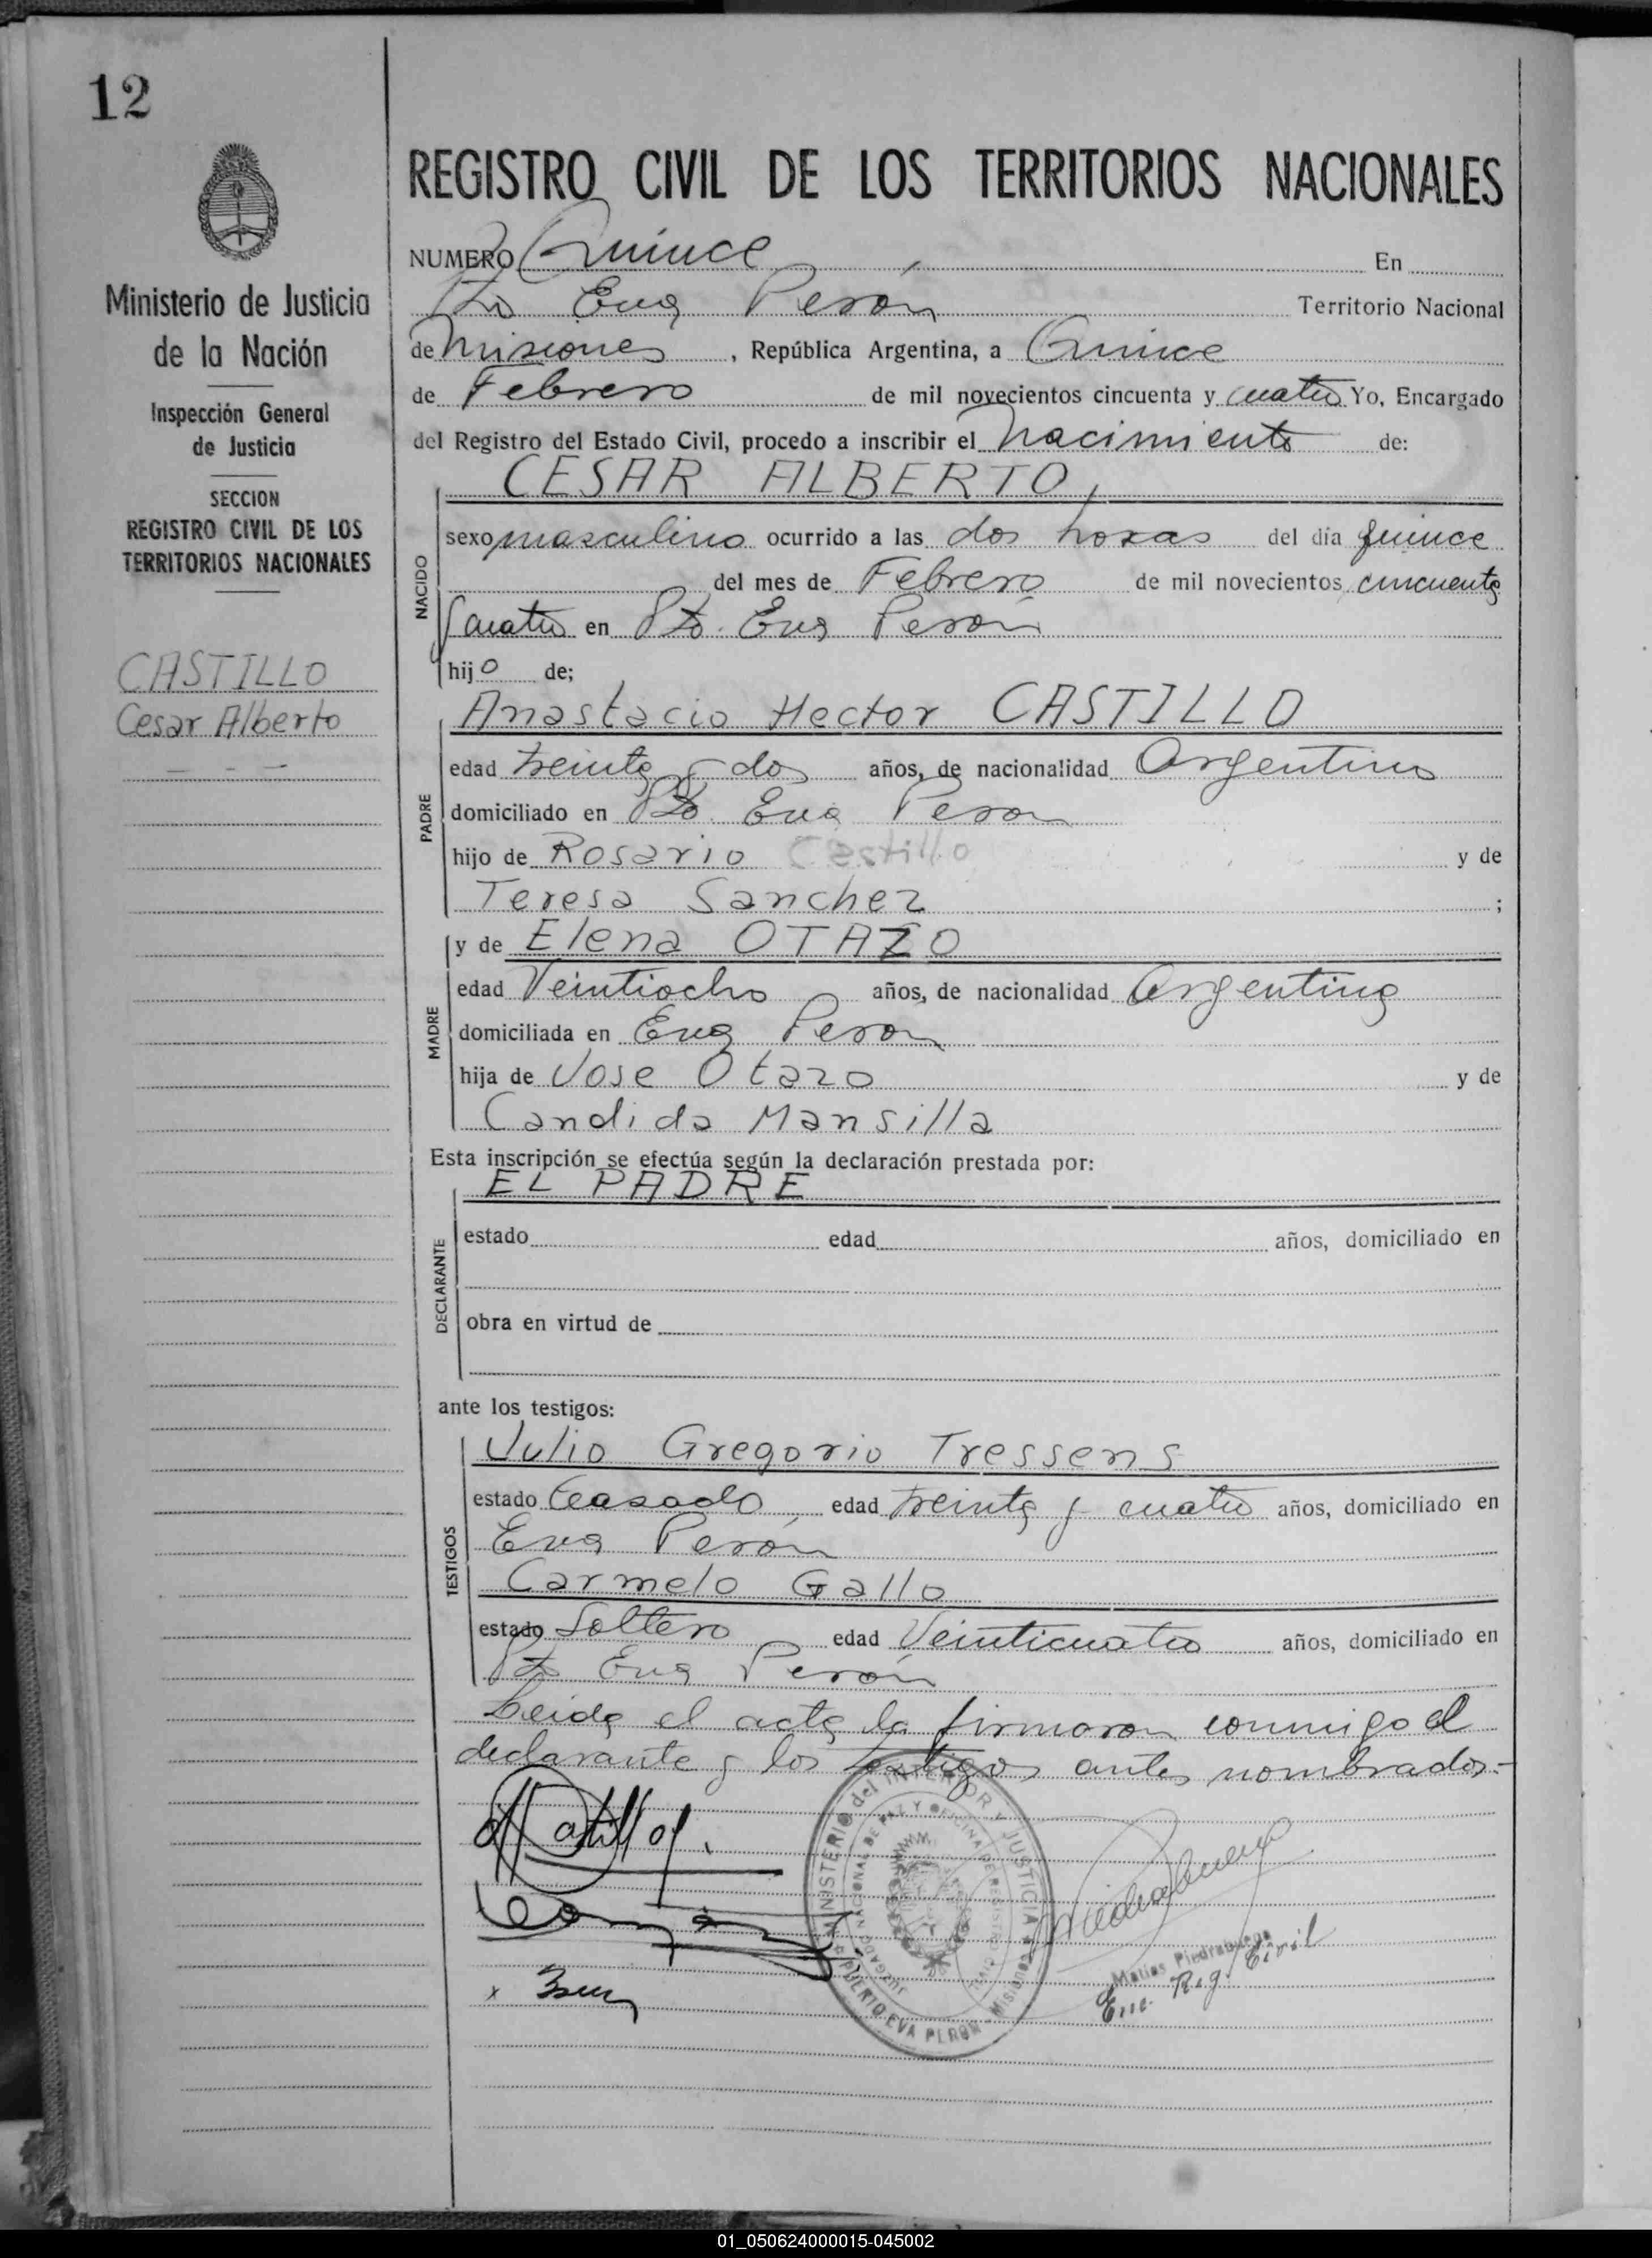 12
Ministerio de Justicia
de la Nación
Inspección General
de Justicia
SECCION
REGISTRO CIVIL DE LOS
TERRITORIOS NACIONALES
CASTILLO
Cesar Alberto
REGISTRO CIVIL DE LOS TERRITORIOS NACIONALES
NUMERO Quince En
Pto Eva Perón Territorio Nacional
de Misiones, República Argentina, a Quince
de Febrero de mil novecientos cincuenta y cuatro Yo, Encargado
del Registro del Estado Civil, procedo a inscribir el nacimiento de:
CESAR ALBERTO,
NACIDO
sexo masculino ocurrido a las dos horas del día quince
del mes de Febrero de mil novecientos cincuenta
y cuatro en Pto. Eva Perón
hijo de;
PADRE
Anastacio Hector CASTILLO
edad treinta y dos años, de nacionalidad Argentino
domiciliado en Pto. Eva Peron
hijo de Rosario Castillo y de
Teresa Sanchez ;
MADRE
y de Elena OTAZO
edad Veintiocho años, de nacionalidad Argentina
domiciliada en Eva Peron
hija de Jose Otazo y de
Candida Mansilla
Esta inscripción se efectúa según la declaración prestada por:
DECLARANTE
EL PADRE
estado edad años, domiciliado en
obra en virtud de
ante los testigos:
TESTIGOS
Julio Gregorio Tressens
estado Casado edad treinta y cuatro años, domiciliado en
Eva Perón
Carmelo Gallo
estado Soltero edad Veinticuatro años, domiciliado en
Pto Eva Perón
Leida el acta la firmaron conmigo el
declarante y los testigos antes nombrados.-
MINISTERIO del INTERIOR Y JUSTICIA
JUZGADO NACIONAL DE PAZ Y OFICINA DE REGISTRO CIVIL
PUERTO EVA PERON - Misiones
Matias Piedrabuena
Enc. Reg. Civil
01_050624000015-045002